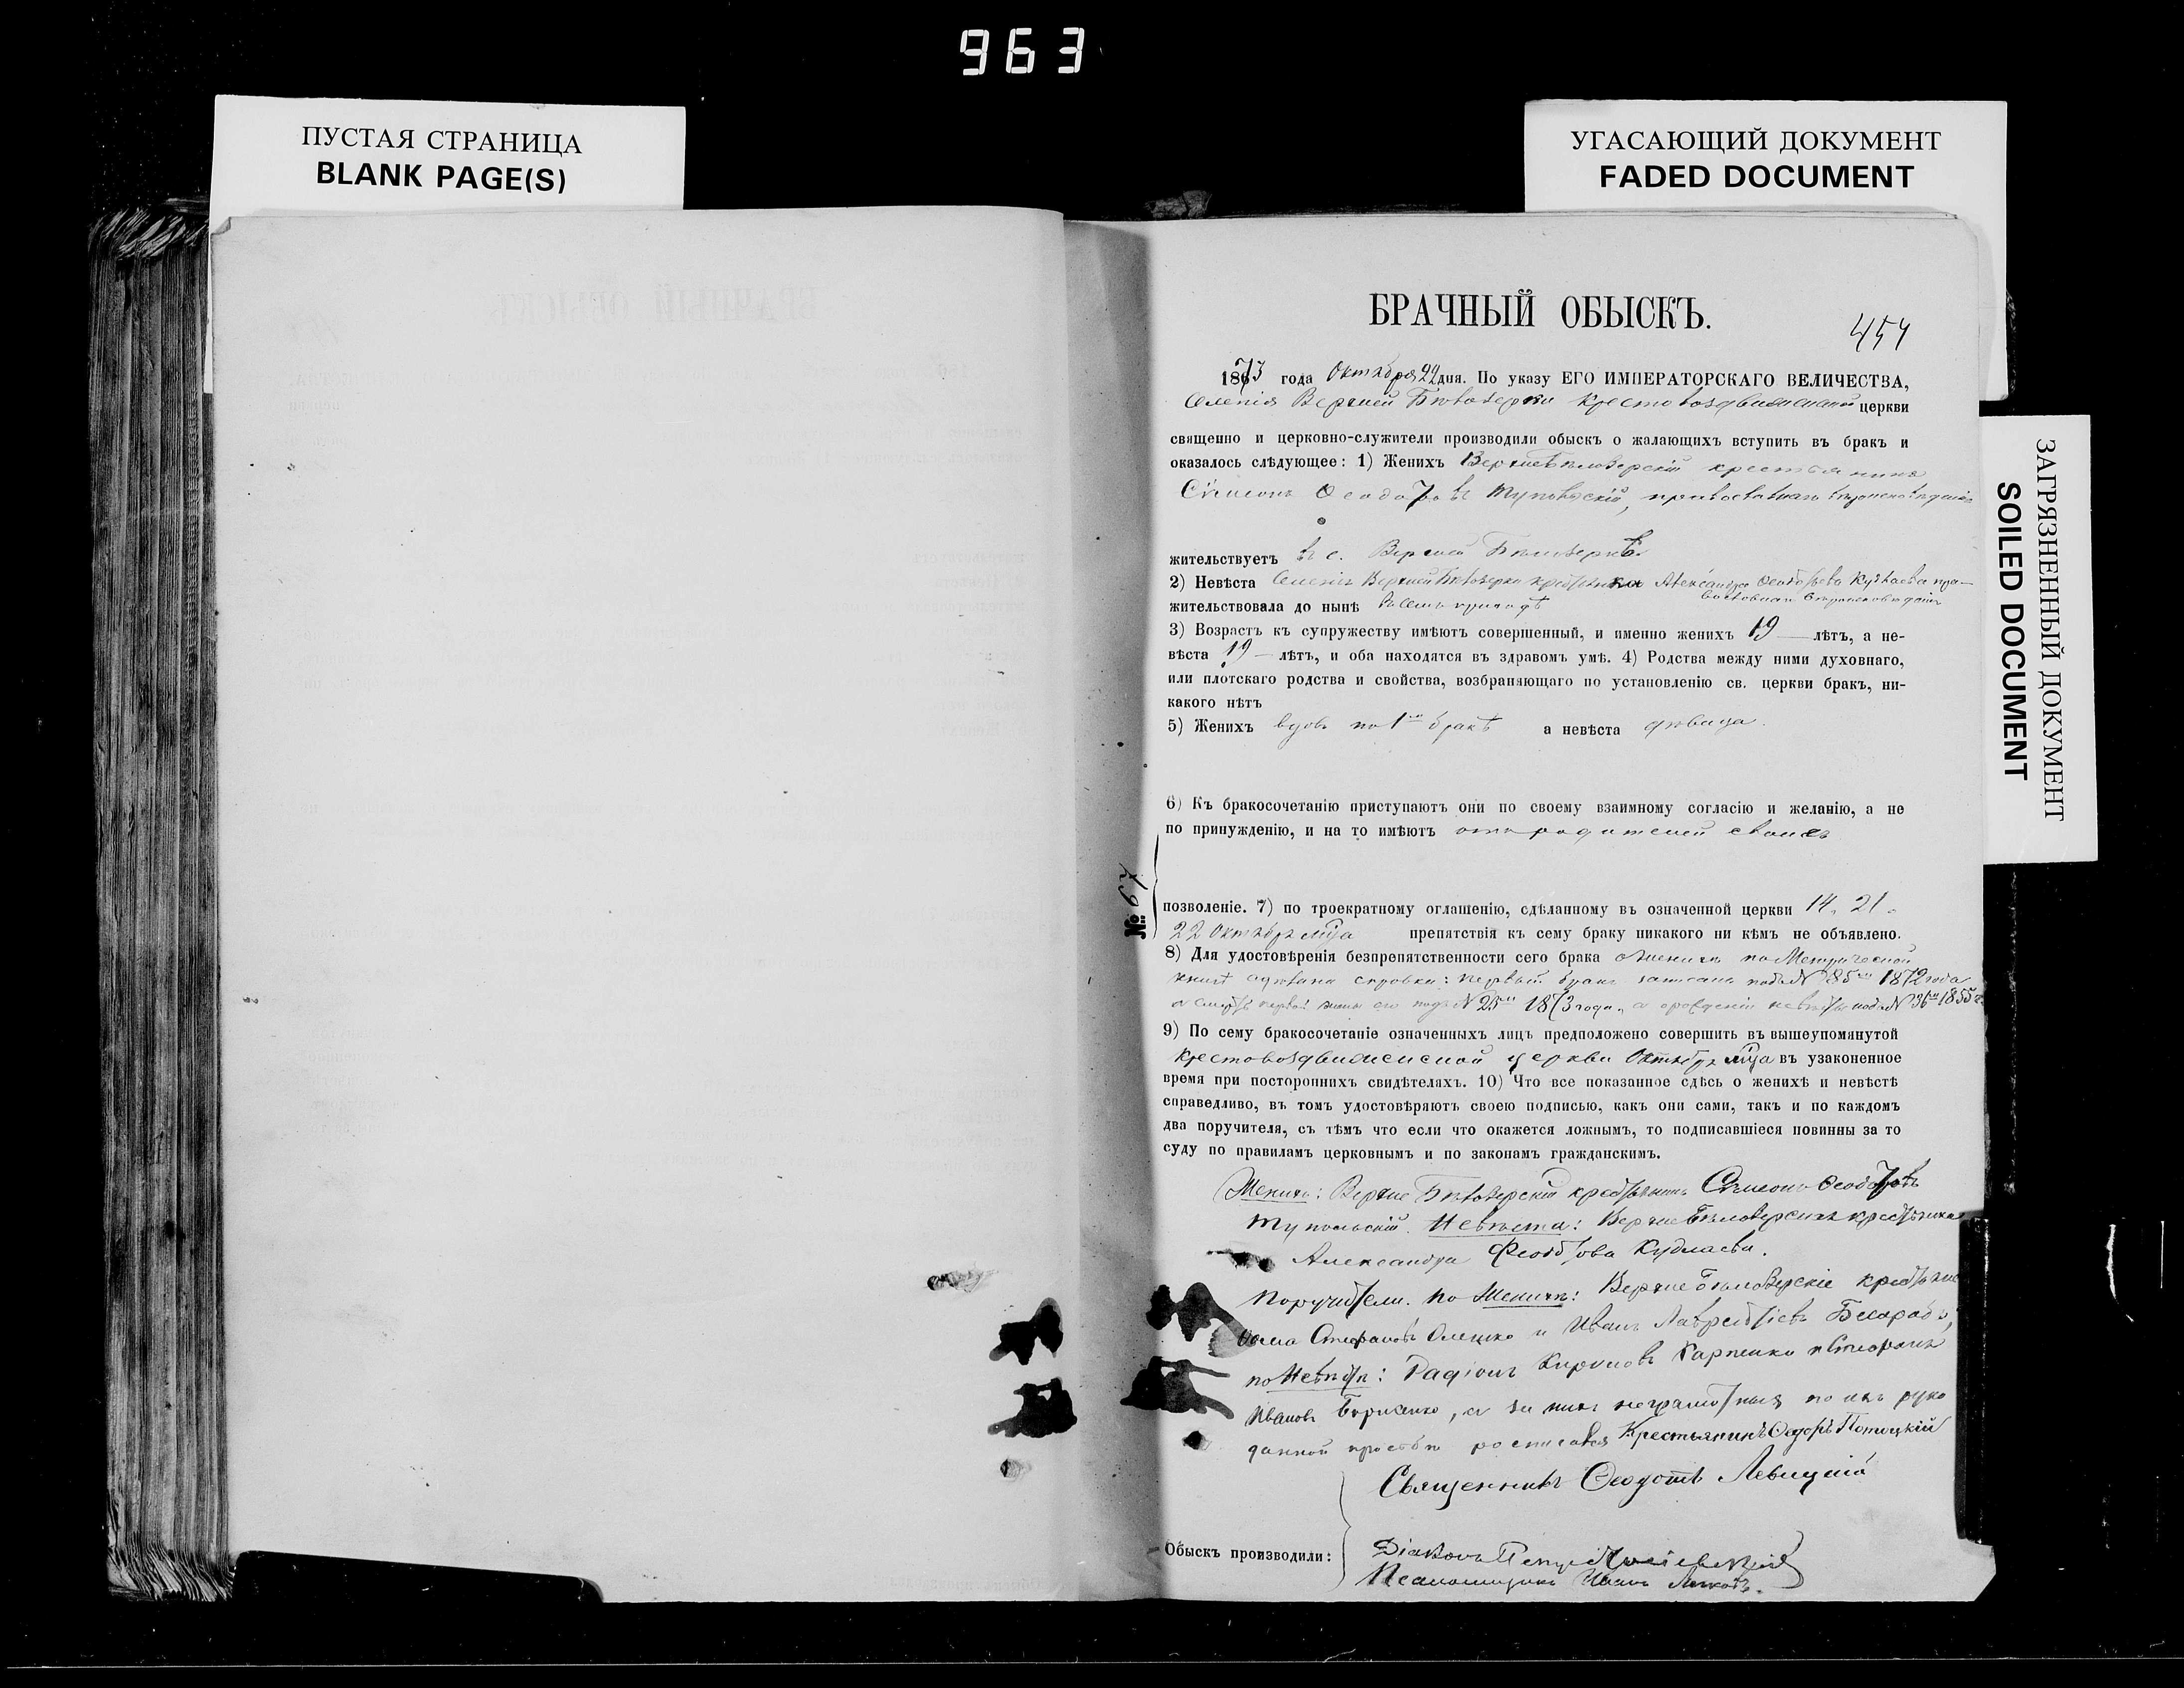 963
ПУСТАЯ СТРАНИЦА
BLANK PAGE(S)
УГАСАЮЩИЙ ДОКУМЕНТ
FADED DOCUMENT
ЗАГРЯЗНЕННЫЙ ДОКУМЕНТ
SOILED DOCUMENT
БРАЧНЫЙ ОБЫСКЪ.
454
1873 года Октября 22 дня. По указу ЕГО ИМПЕРАТОРСКАГО ВЕЛИЧЕСТВА,
Селенія Верхней Бѣлозерки Крестовоздвиженской церкви
священно и церковно-служители производили обыскъ о жалающихъ вступить въ бракъ и
оказалось слѣдующее: 1) Женихъ Верхнебѣлозерскій крестьянинъ
Сѵмеонъ Ѳеодотовъ православнаго вѣроисповѣданія
жительствуетъ въ с. Верхней Бѣлозеркѣ
2) Невѣста Селенія Верхней Бѣлозерки крестьянка Александра Ѳеодотова пра-
вославнаго вѣроисповѣданія
жительствовала до нынѣ въ семъ приходѣ
3) Возрастъ къ супружеству имѣютъ совершенный, и именно женихъ 19 лѣтъ, а не-
вѣста 19 лѣтъ, и оба находятся въ здравомъ умѣ. 4) Родства между ними духовнаго,
или плотскаго родства и свойства, возбраняющаго по установленію св. церкви бракъ, ни-
какого нѣтъ
5) Женихъ вдовъ по 1мъ бракѣ а невѣста дѣвица.
6) Къ бракосочетанію приступаютъ они по своему взаимному согласію и желанію, а не
по принужденію, и на то имѣютъ отъ родителей своихъ
№ 67
позволеніе. 7) по троекратному оглашенію, сдѣланному въ означенной церкви 14, 21,
22 Октября мца препятствія къ сему браку никакого ни кѣмъ не объявлено.
8) Для удостовѣренія безпрепятственности сего брака о женихѣ по Метрической
книгѣ справка: первый бракъ записанъ подъ № 85 1872 года
а смерть первой жены его подъ № 25 1873 года, а о рожденіи невѣсты подъ № 36 1855 г.
9) По сему бракосочетаніе означенныхъ лицъ предположено совершить въ вышеупомянутой
Крестовоздвиженской церкви Октября мца въ узаконенное
время при постороннихъ свидѣтеляхъ. 10) Что все показанное сдѣсь о женихѣ и невѣстѣ
справедливо, въ томъ удостовѣряютъ своею подписью, какъ они сами, такъ и по каждомъ
два поручителя, съ тѣмъ что если что окажется ложнымъ, то подписавшіеся повинны за то
суду по правиламъ церковнымъ и по законамъ гражданскимъ.
Женихъ: Верхне Бѣлозерскій крестьянинъ Сѵмеонъ Ѳеодотовъ
Невѣста: Верхне Бѣлозерская крестьянка
Александра Феодотова
Поручители. по Женихѣ: Верхне Бѣлозерскіе крестьяне
Ѳома Стефановъ Олешко и Иванъ Лаврентіевъ Бесарабъ,
по Невѣстѣ: Радіонъ Кириловъ Карпенко и Стефанъ
Ивановъ Борисенко, а за нихъ неграмотныхъ по ихъ руко
данной прозьбѣ росписался Крестьянинъ Ѳедоръ Потоцкій
Священникъ Ѳеодотъ Левицкій
Обыскъ производили:
Діаконъ Петръ
Псаломщикъ Иванъ